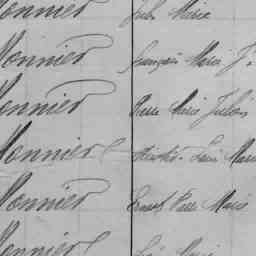 Monnier Jules Marie
Monnier François Marie J.
Monnier Pierre Marie Julien
Monnier Aristide Louis Marie
Monnier Ernest Pierre Marie
Monnier Marie